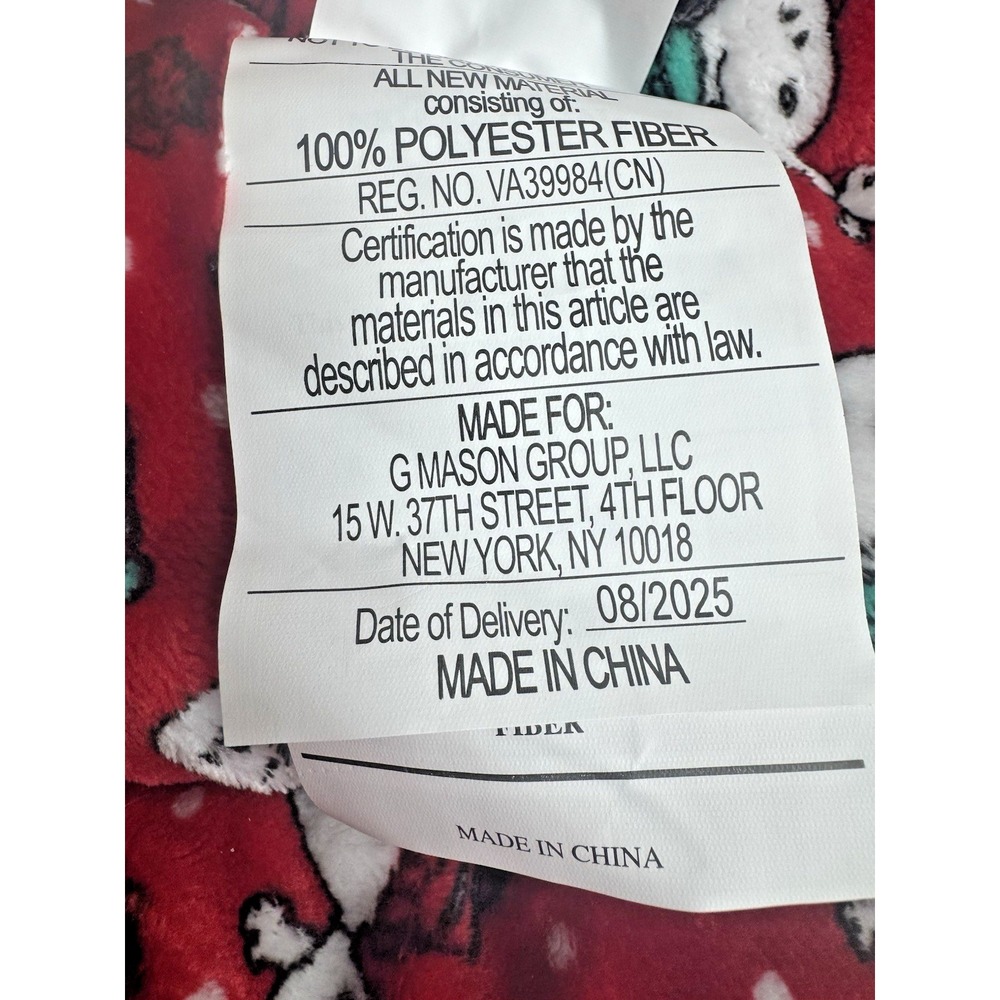 NOT TO
THE CONSUMER
ALL NEW MATERIAL
consisting of:
100% POLYESTER FIBER
REG. NO. VA39984(CN)
Certification is made by the
manufacturer that the
materials in this article are
described in accordance with law.
MADE FOR:
G MASON GROUP, LLC
15 W. 37TH STREET, 4TH FLOOR
NEW YORK, NY 10018
Date of Delivery: 08/2025
MADE IN CHINA
FIBER
MADE IN CHINA